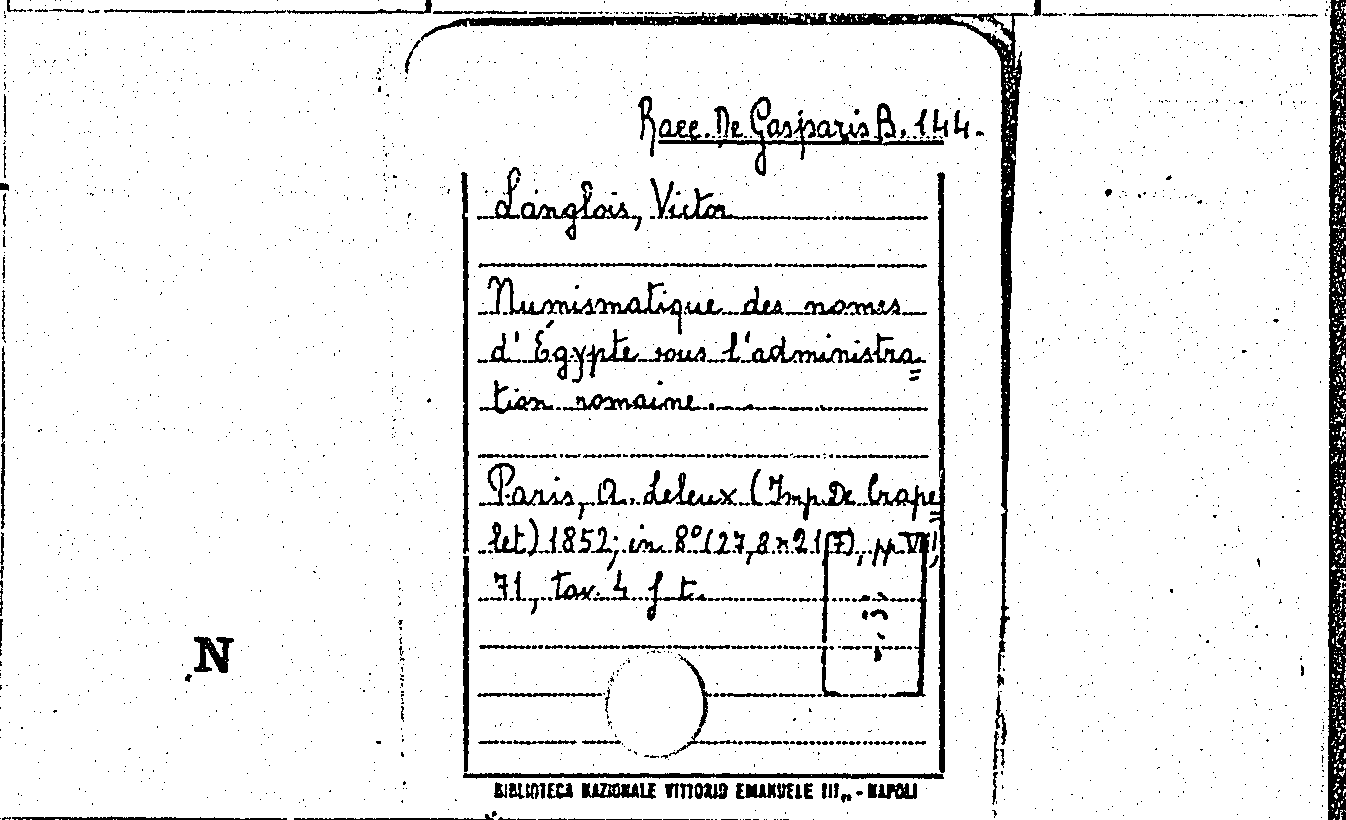 Racc. De Gasparis B. 144.
Langlois, Victor
Numismatique des nomes
d'Égypte sous l'administra=
tion romaine.
Paris, A. Leleux (Imp. De Crape=
let) 1852; in 8° (27,8x21,7), pp VII,
71, tav. 4 f t.
N
BIBLIOTECA NAZIONALE VITTORIO EMANUELE III„ - NAPOLI